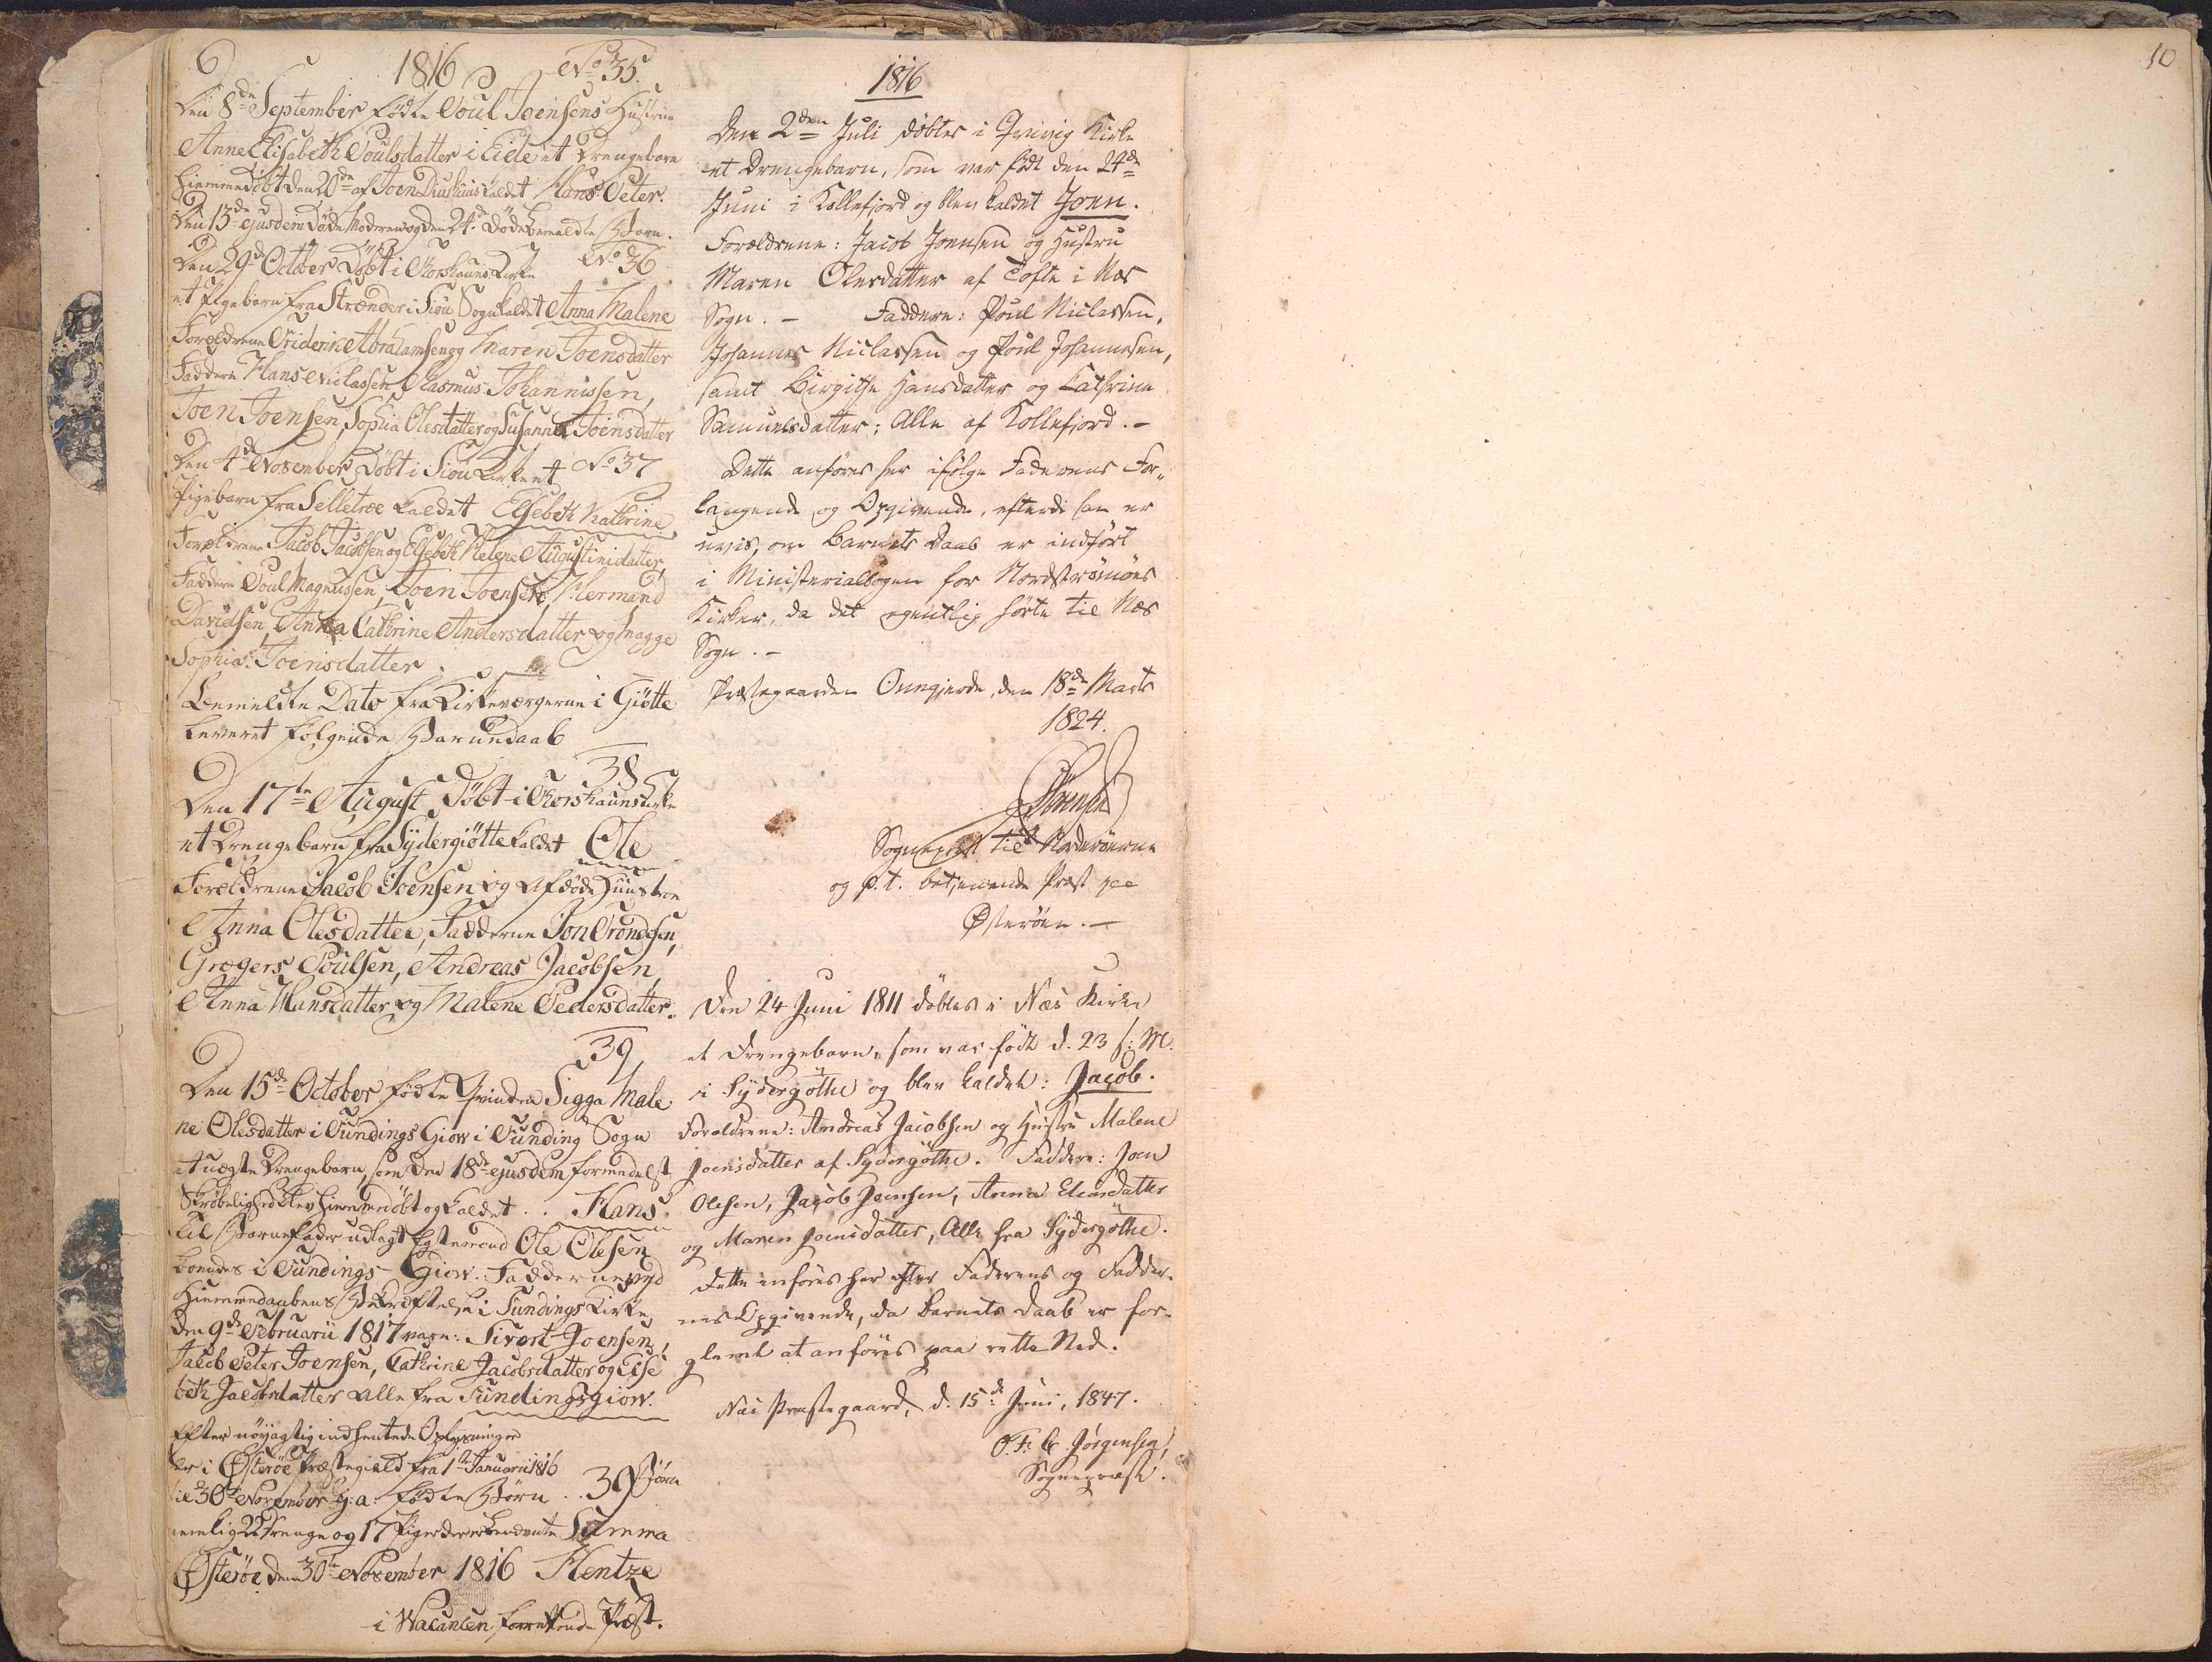 1816 No 35.
Den 8de September födte Poul Joensens Hustrue
Anne Elisabeth Poulsdatter i Eide et Drengebarn
hiemmedöbt den 20de af Joen Diurhuus kaldet Hans Peter.
Den 13de ejusdem döde Moderen og den 24de döde bemeldte Barn.
Den 29de October Döbt i Thorshauns Kirke No 36
et Pigebarn fra Strænder i Siöu Sogn kaldet Anna Malene
Forældrene Friderik Abrahamsen og Maren Joensdatter
Faddere Hans Niclassen, Rasmus Johannissen,
Joen Joensen, Sophia Olesdatter og Susanna Joensdatter
Den 4de November Döbt i Siöu Kirke et No 37
Pigebarn fra Selletræ kaldet Elsebeth Kathrine
Forældrene Jacob Jacobsen og Elsebeth Helene Augustinidatter,
Faddere Poul Magnussen, Joen Joensen, Hermand
Davidsen, Anna Cathrine Andersdatter og Magge
Sophia Joensdatter.
Bemeldte Dato fra Kirkeværgerne i Giötte
leveret fölgende Barnedaab
38
Den 17te August Döbt i Thorshauns Kirke
et Drengebarn fra Sydergiötte kaldet Ole
Forældrene Jacob Joensen og afdöde Huustroe
Anna Olesdatter, Fadderne Jon Tröndesen,
Grægers Poulsen, Andreas Jacobsen
Anna Hansdatter og Malene Pedersdatter.
39
Den 15de October födte Qvinden Sigga Male
ne Olesdatter i Fundings Giow i Funding Sogn
et uægte Drengebarn, som den 18de ejusdem formedelst
Skröbelighed blev hiemmedöbt og kaldet .. Hans.
til Barnefader udlagt Ægtemand Ole Olesen
boendes i Fundings Giow. Fadderne ved
Hiemmedaabens Bekræftelse i Fundings Kirke
den 9de Februarii 1817 vare: Sivert Joensen,
Jacob Peter Joensen, Cathrine Jacobsdatter og Else
beth Jacobsdatter alle fra Fundingsgiow.
Efter nöyagtig indhentede Oplysninger
er i Österöe Præstegield fra 1te Januarii 1816
til 30te November h: a: födte Börn .. 39 Börn
nemlig 22 Drenge og 17 Piger Summa
Österöe den 30te November 1816 Hentze
i Vacancen forrettende Præst.
1816
Den 2den Juli döbtes i Qvivig Kirke
et Drengebarn, som var födt den 24de
Juni i Kollefjord og blev kaldet Joen.
Forældrene: Jacob Joensen og Hustru
Maren Olesdatter af Tofte i Næs
Sogn. – Faddere: Poul Niclassen,
Johannes Niclassen og Poul Johannesen,
samt Birgithe Hansdatter og Cathrine
Samuelsdatter; Alle af Kollefjord. –
Dette anföres her ifölge Faderens For„
langende og Opgivende, efterdi han er
uvis, om Barnets Daab er indfört
i Ministerialbogen for Nordströmöes
Kirker, da det egentlig hörte til Næs
Sogn. –
Præstegaarden Onnagerde, den 18de Marts
1824.
Sörensen
Sognepræst til Norderöerne
og p. t. betjenende Præst paa
Österöen. –
Den 24 Juni 1811 döbtes i Næs Kirke
et Drengebarn, som var födt d. 23 s: M.
i Sydergöthe og blev kaldet: Jacob.
Forældrene: Andreas Jacobsen og Hustru Malene
Joensdatter af Sydergöthe. Faddere: Joen
Olesen, Jacob Joensen, Anna Eliasdatter
og Maren Joensdatter, Alle fra Sydergöthe.
Dette anföres her efter Faderens og Fadder-
nes Opgivende, da Barnets Daab er for-
glemt at anföres paa rette Sted.
Næs Præstegaard, d. 15de Juni, 1847.
O. F. C. Jörgensen,
Sognepræst.
10